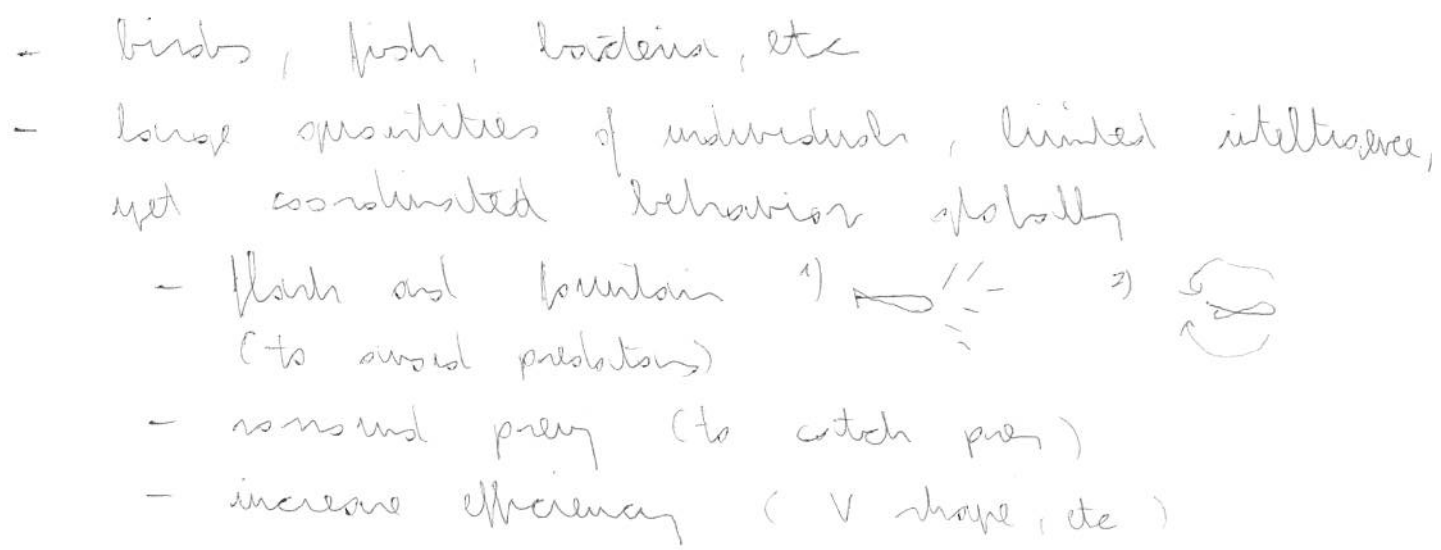 - birds, fish, bacteria, etc
- large quantities of individuals, limited intelligence,
yet coordinated behavior globally
- flash and fountain 1) 2)
(to avoid predators)
- surround prey (to catch prey)
- increase efficiency (V shape, etc)